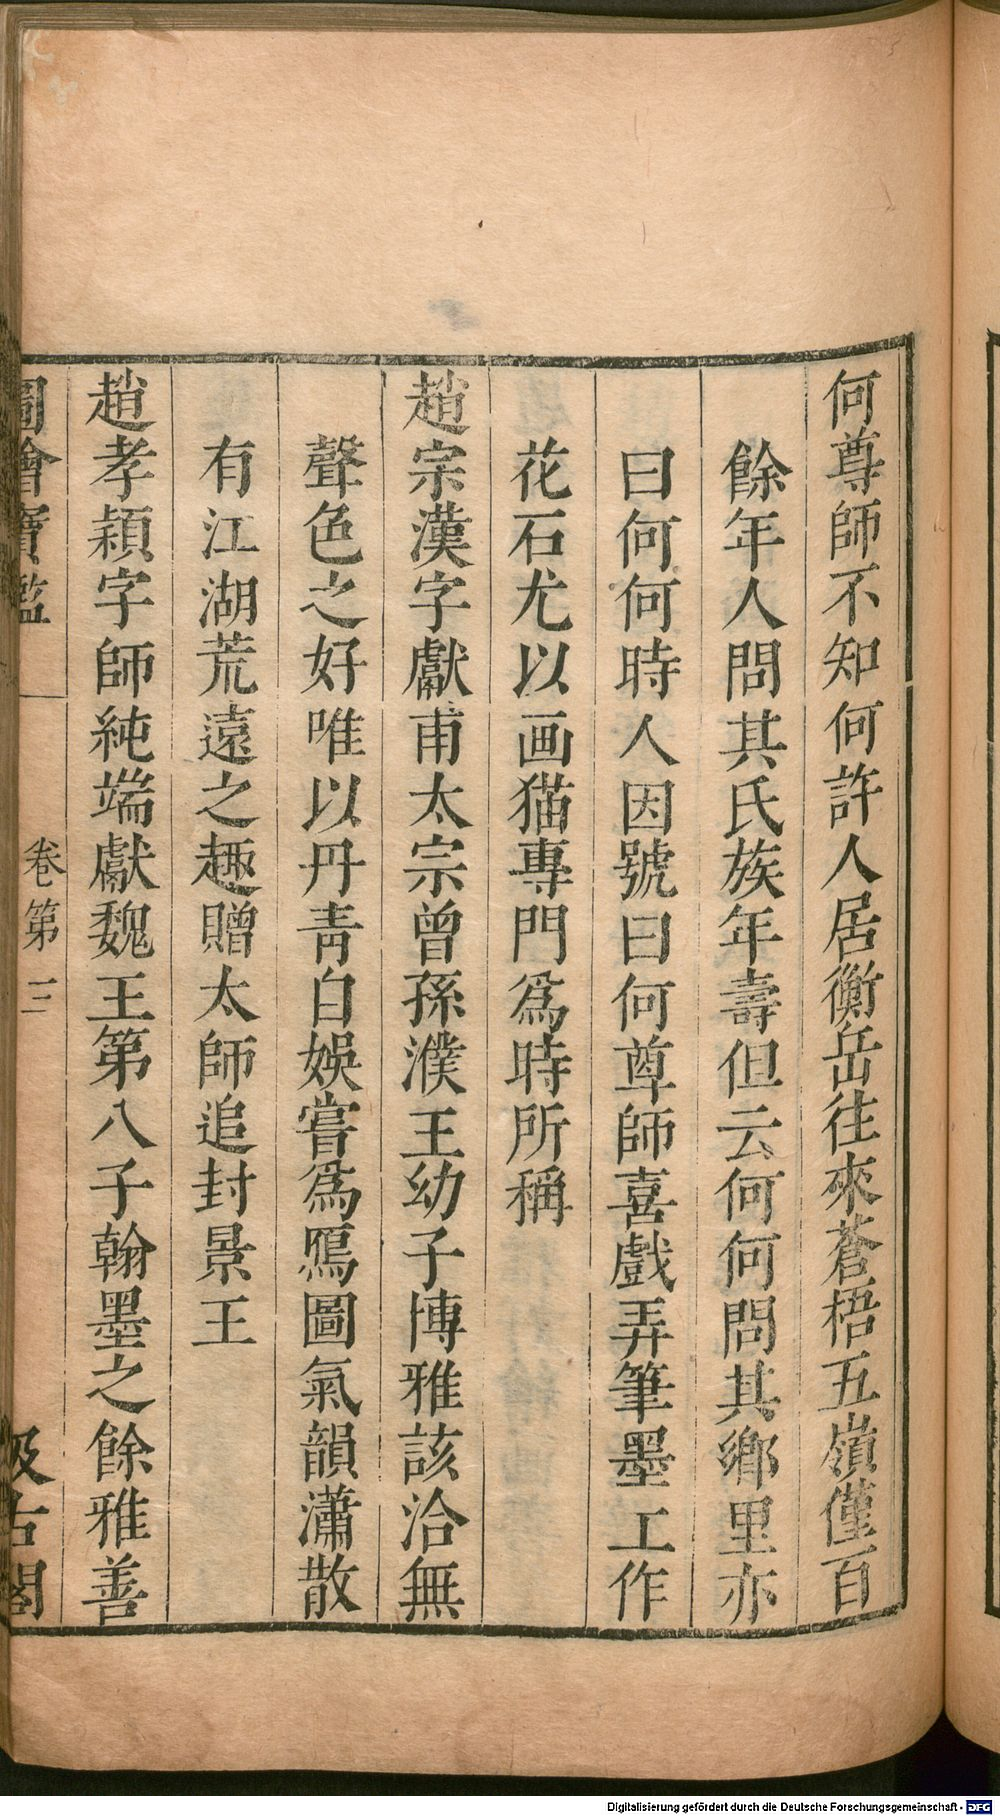 何尊師不知何許人居衡岳往來蒼梧五嶺僅百
餘年人問其氏族年壽但云何何問其鄉里亦
曰何何時人因號曰何尊師喜戲弄筆墨工作
花石尤以画猫專門爲時所稱
趙宗漢字獻甫太宗曾孫濮王幼子博雅該洽無
聲色之好唯以丹青自娛嘗爲鴈圖氣韻瀟散
有江湖荒遠之趣贈太師追封景王
趙孝穎字師純端獻魏王第八子翰墨之餘雅善
圖繪寶鑑 卷第三 汲古閣
Digitalisierung gefördert durch die Deutsche Forschungsgemeinschaft - DFG